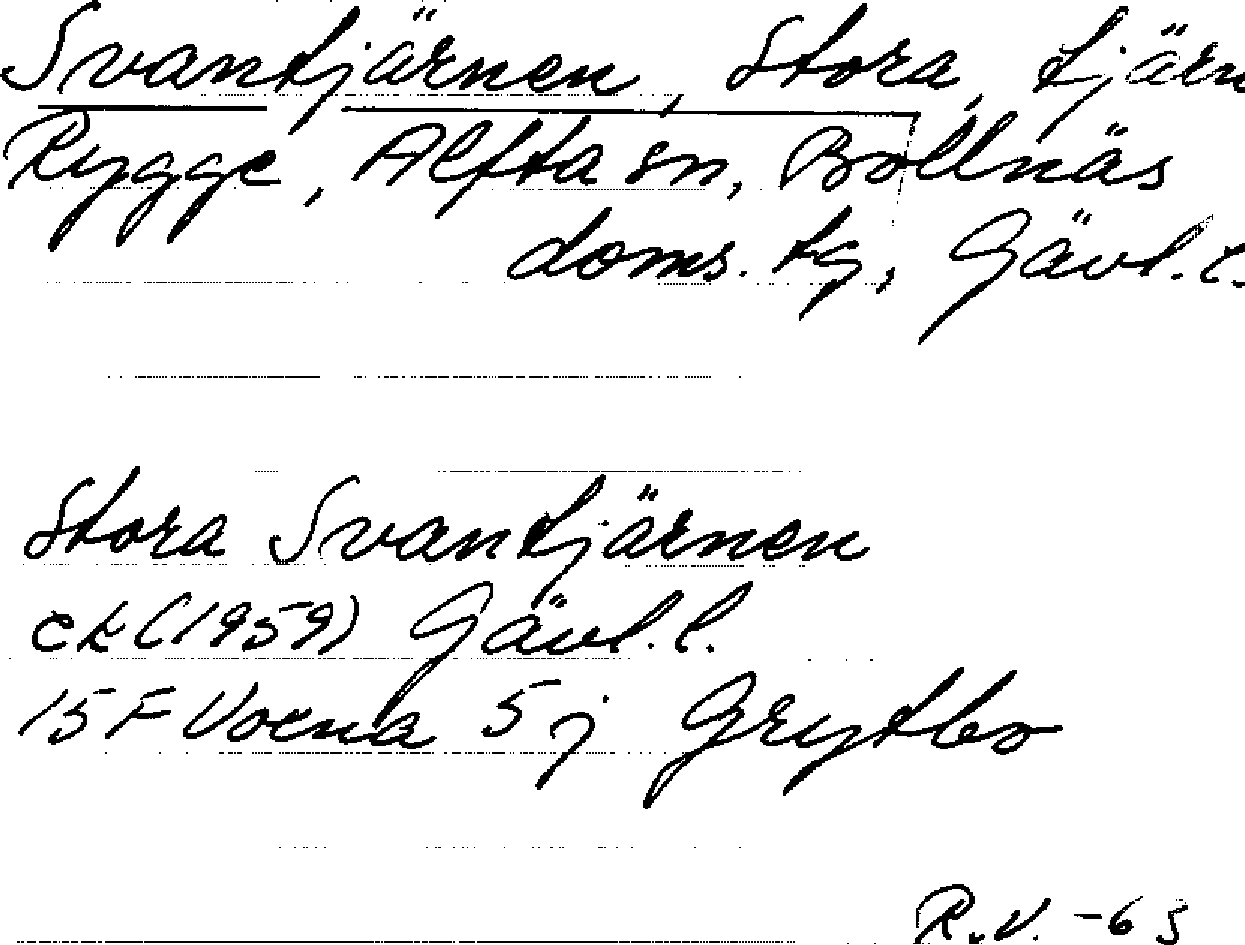 Svantjärnen, Stora, tjärn
Rygge, Alfta sn, Bollnäs
doms. tg, Gävl. l.
Stora Svantjärnen
ek (1959) Gävl. l.
15 F Voxna 5 j Grytbo
R.V. -63